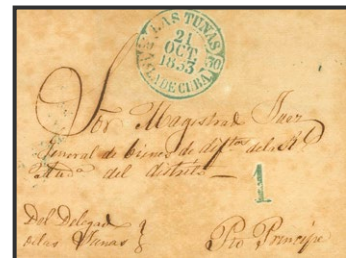 LAS TUNAS
21
OCT
1853
ISLA DE CUBA
Sor Magistral Juez
General de bienes de diftos del
del distrito
1
Del Delegado
de las Tunas
Pto Principe